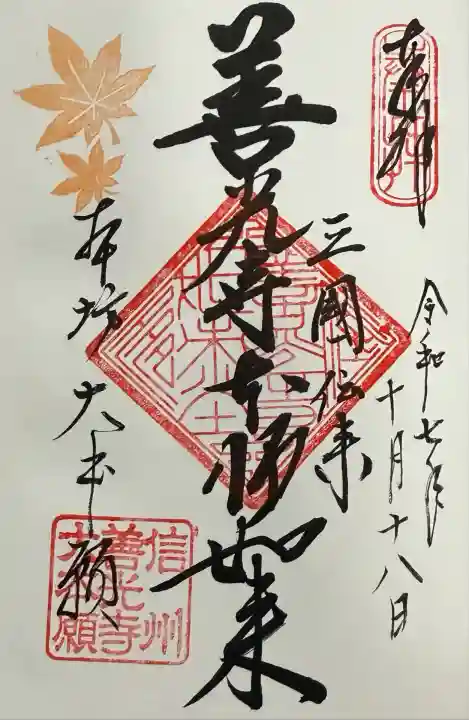 奉拝
令和七年
十月十八日
三國伝来
善光寺本師如来
本坊 大本願
信州
善光寺
大本願